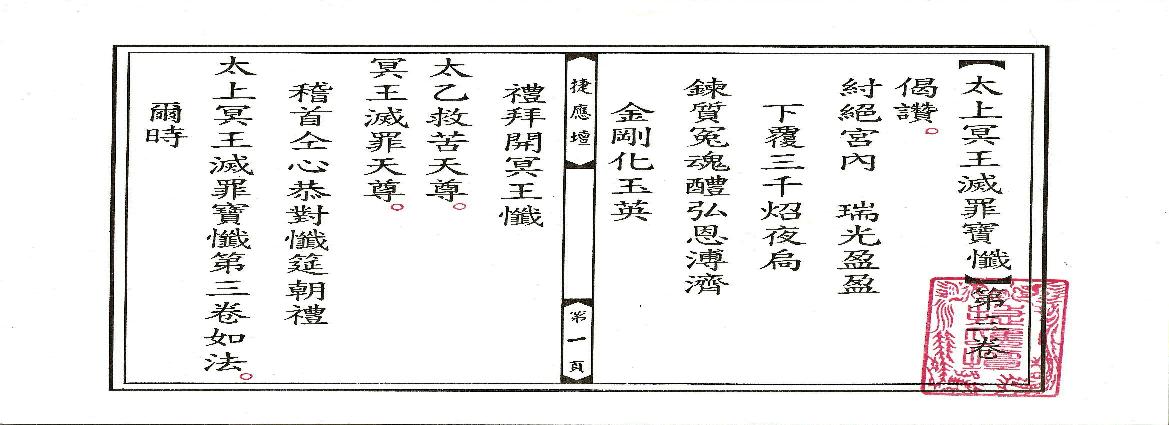 【太上冥王滅罪寶懺】第三卷
偈讚。
紂絕宮內　瑞光盈盈
下覆三千炤夜扃
鍊質冤魂醴弘恩溥濟
金剛化玉英
捷應壇
第一頁
禮拜開冥王懺
太乙救苦天尊。
冥王滅罪天尊。
稽首仝心恭對懺筵朝禮
太上冥王滅罪寶懺第三卷如法。
爾時